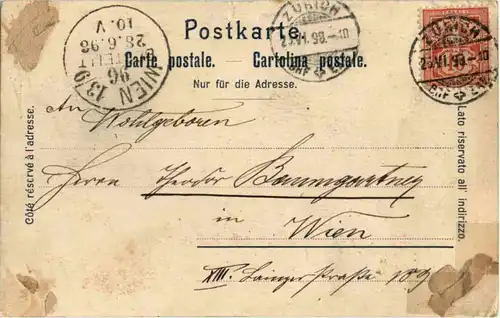 Postkarte.
Carte postale. — Cartolina postale.
Nur für die Adresse.
WIEN 13/9
96
BESTELLT
28.6.98
10.V
ZÜRICH
25.VI.98.-10
BRF. EXP.
ZÜRICH
25.VI.98.-10
Côté réservé à l'adresse.
Lato riservato all' indirizzo.
An Wohlgeboren
Herrn Theodor Baumgartner
in
Wien
XIII. Lainzerstraße